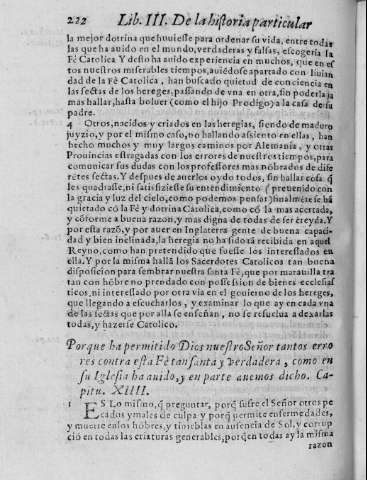 212 Lib. III. De la historia particular
la mejor dotrina que huuiesse para ordenar su vida, entre todas
las que ha auido en el mundo, verdaderas y falsas, escogeria la
Fè Catolica Y desto ha auido experiencia en muchos, que en es
tos nuestros miserables tiempos, auiēdose apartado con liuian
dad de la Fè, han buscado quietud de conciencia en
las sectas de los hereges, passando de vna en otra, sin poderla ja
mas hallar, hasta boluer (como el hijo Prodigo) a la casa de su
padre.
4 Otros, nacidos y criados en las heregias, siendo de maduro
juyzio, y por el mismo caso, no hallando assiento en ellas, han
hecho muchos y muy largos caminos por Alemania, y otras
Prouincias estragadas con los errores de nuestros tiempos, para
comunicar sus dudas con los professores mas nōbrados de dife
rētes sectas. Y despues de auerlos oydo todos, sin hallar cosa q̃
les quadrasse, ni satisfiziesse su entendimiento (preuenido con
la gracia y luz del cielo, como podemos pensar) finalmēte se hā
quietado cō la Fè y dotrina Catolica, como cō la mas acertada,
y cōforme a buena razon, y mas digna de todas de ser creyda. Y
por esta razō, y por auer en Inglaterra gente de buena capaci-
dad y bien inclinada, la heregia no ha sido tā recibida en aquel
Reyno, como han pretendido que fuesse los interessados en
ella. Y por la misma hallā los Sacerdotes Catolicos tan buena
disposicion para sembrar nuestra santa Fè, que por marauilla tra
tan con hōbre no prendado con possession de bienes ecclesias
ticos, ni interessado por otra via en el gouierno de los hereges,
que llegando a escucharlos, y examinar lo que ay en cada vna
de las sectas que por alla se enseñan, no se resuelua a dexarlas
todas, y hazerse Catolico.
Porque ha permitido Dios nuestro Señor tantos erro
res contra esta Fè tan santa y verdadera, como en
su Iglesia ha auido, y en parte auemos dicho. Ca-
pitu. XIIII.
1 ES Lo mismo, q̃ preguntar, porq̃ sufre el Señor otros pe
cados y males de culpa y porq̃ permite enfermedades,
y muerte en los hōbres, y tinieblas en ausencia de Sol, y corrup
ciō en todas las criaturas generables, porq̃ en todas ay la misma
razon